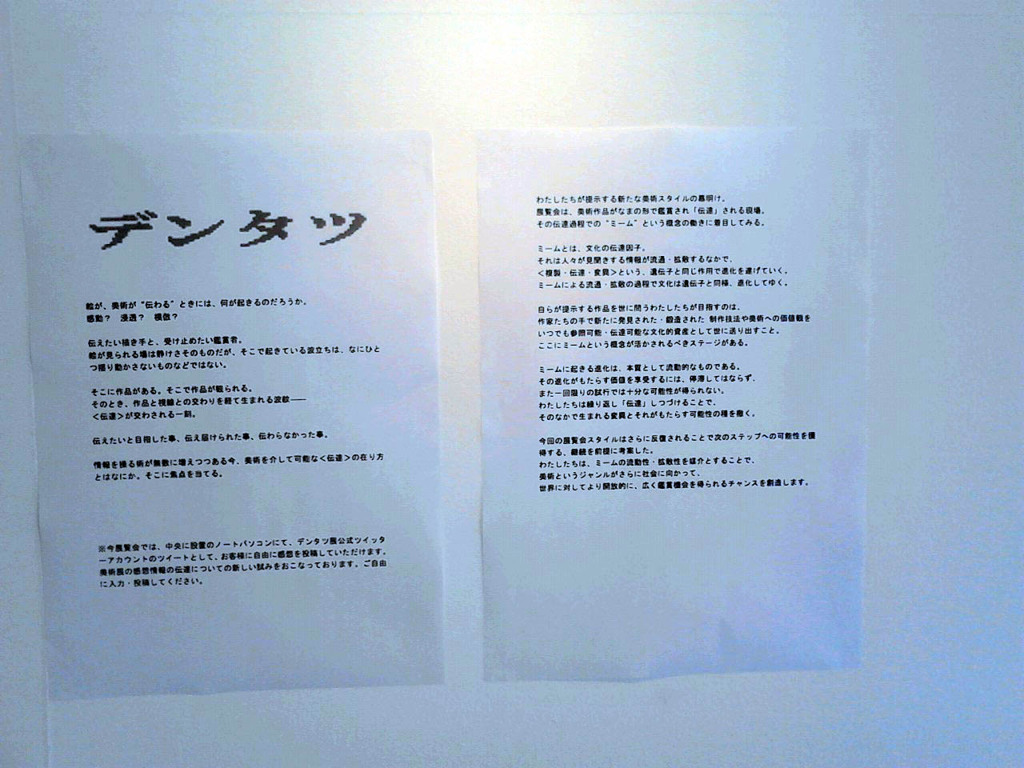 デンタツ
絵が、美術が“伝わる”ときには、何が起きるのだろうか。
感動？ 浸透？ 模倣？
伝えたい描き手と、受け止めたい鑑賞者。
絵が見られる場は静けさそのものだが、そこで起きている波立ちは、なにひと
つ揺り動かさないものなどではない。
そこに作品がある。そこで作品が観られる。
そのとき、作品と視線との交わりを経て生まれる波紋――
＜伝達＞が交わされる一刻。
伝えたいと目指した事、伝え届けられた事、伝わらなかった事。
情報を操る術が無数に増えつつある今、美術を介して可能な＜伝達＞の在り方
とはなにか。そこに焦点を当てる。
※今展覧会では、中央に設置のノートパソコンにて、デンタツ展公式ツイッタ
ーアカウントのツイートとして、お客様に自由に感想を投稿していただけます。
美術展の感想情報の伝達についての新しい試みをおこなっております。ご自由
に入力・投稿してください。
わたしたちが提示する新たな美術スタイルの幕明け。
展覧会は、美術作品がなまの形で鑑賞され「伝達」される現場。
その伝達過程での“ミーム”という概念の働きに着目してみる。
ミームとは、文化の伝達因子。
それは人々が見聞きする情報が流通・拡散するなかで、
＜複製・伝達・変異＞という、遺伝子と同じ作用で進化を遂げていく。
ミームによる流通・拡散の過程で文化は遺伝子と同様、進化してゆく。
自らが提示する作品を世に問うわたしたちが目指すのは、
作家たちの手で新たに発見された・鍛造された 制作技法や美術への価値観を
いつでも参照可能・伝達可能な文化的資産として世に送り出すこと。
ここにミームという概念が活かされるべきステージがある。
ミームに起きる進化は、本質として流動的なものである。
その進化がもたらす価値を享受するには、停滞してはならず、
また一回限りの試行では十分な可能性が得られない。
わたしたちは繰り返し「伝達」しつづけることで、
そのなかで生まれる変異とそれがもたらす可能性の種を撒く。
今回の展覧会スタイルはさらに反復されることで次のステップへの可能性を獲
得する、継続を前提に考案した。
わたしたちは、ミームの流動性・拡散性を媒介とすることで、
美術というジャンルがさらに社会に向かって、
世界に対してより開放的に、広く鑑賞機会を得られるチャンスを創造します。